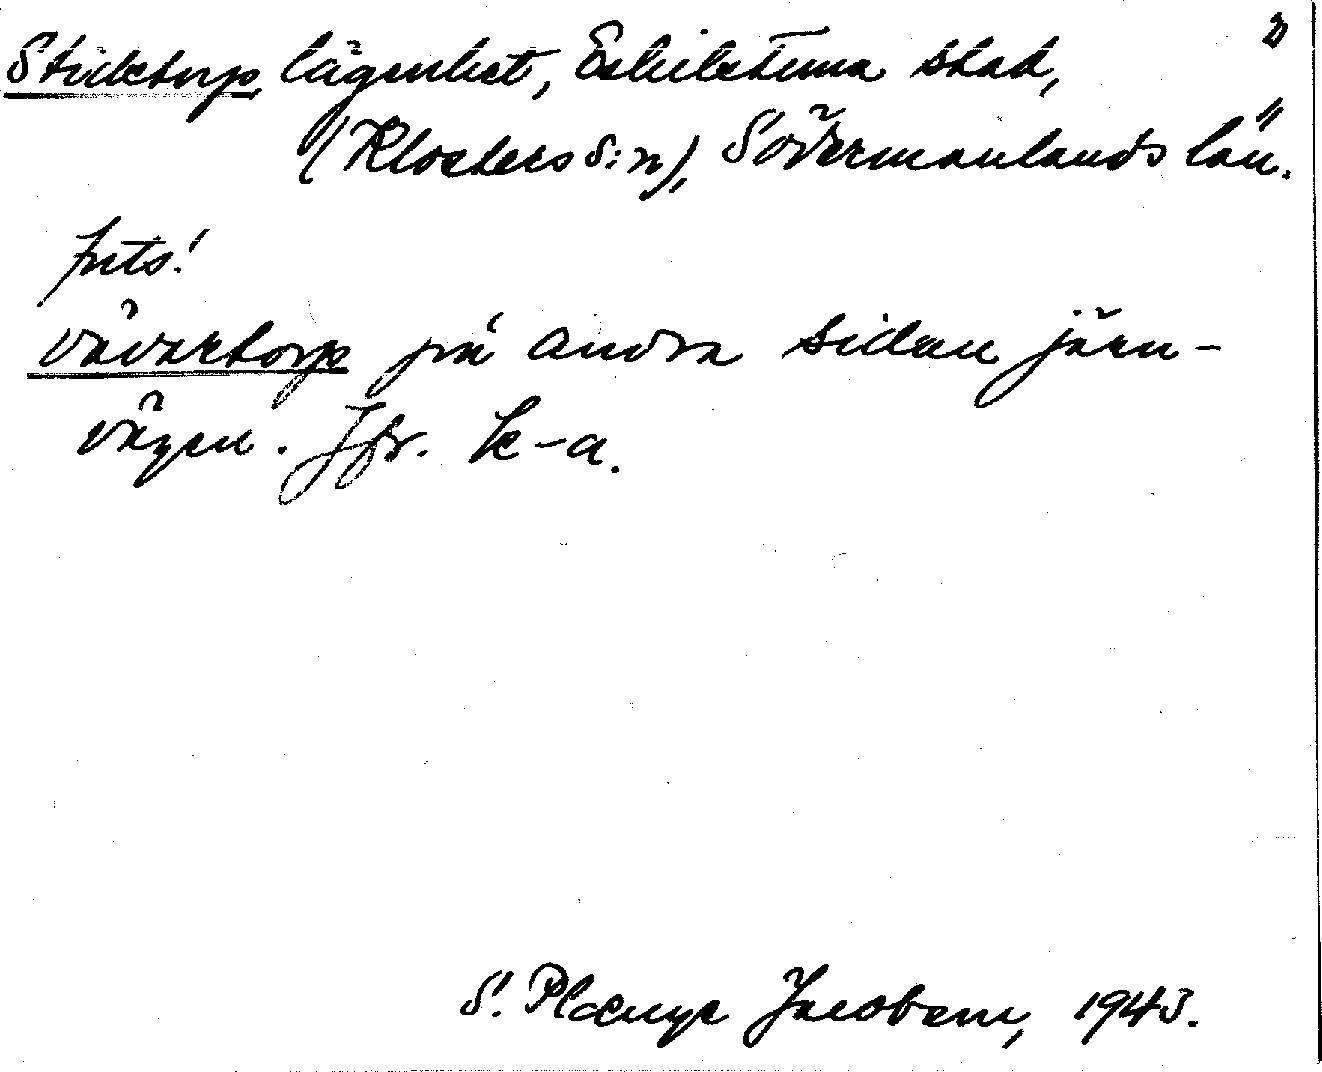 2)
Sticktorp, lägenhet, Eskilstuna stad,
(Klosters s:n), Södermanlands län.
forts!
Vävartorp på andra sidan järn-
vägen. Jfr. k-a.
S. Plœnge Jacobson, 1943.